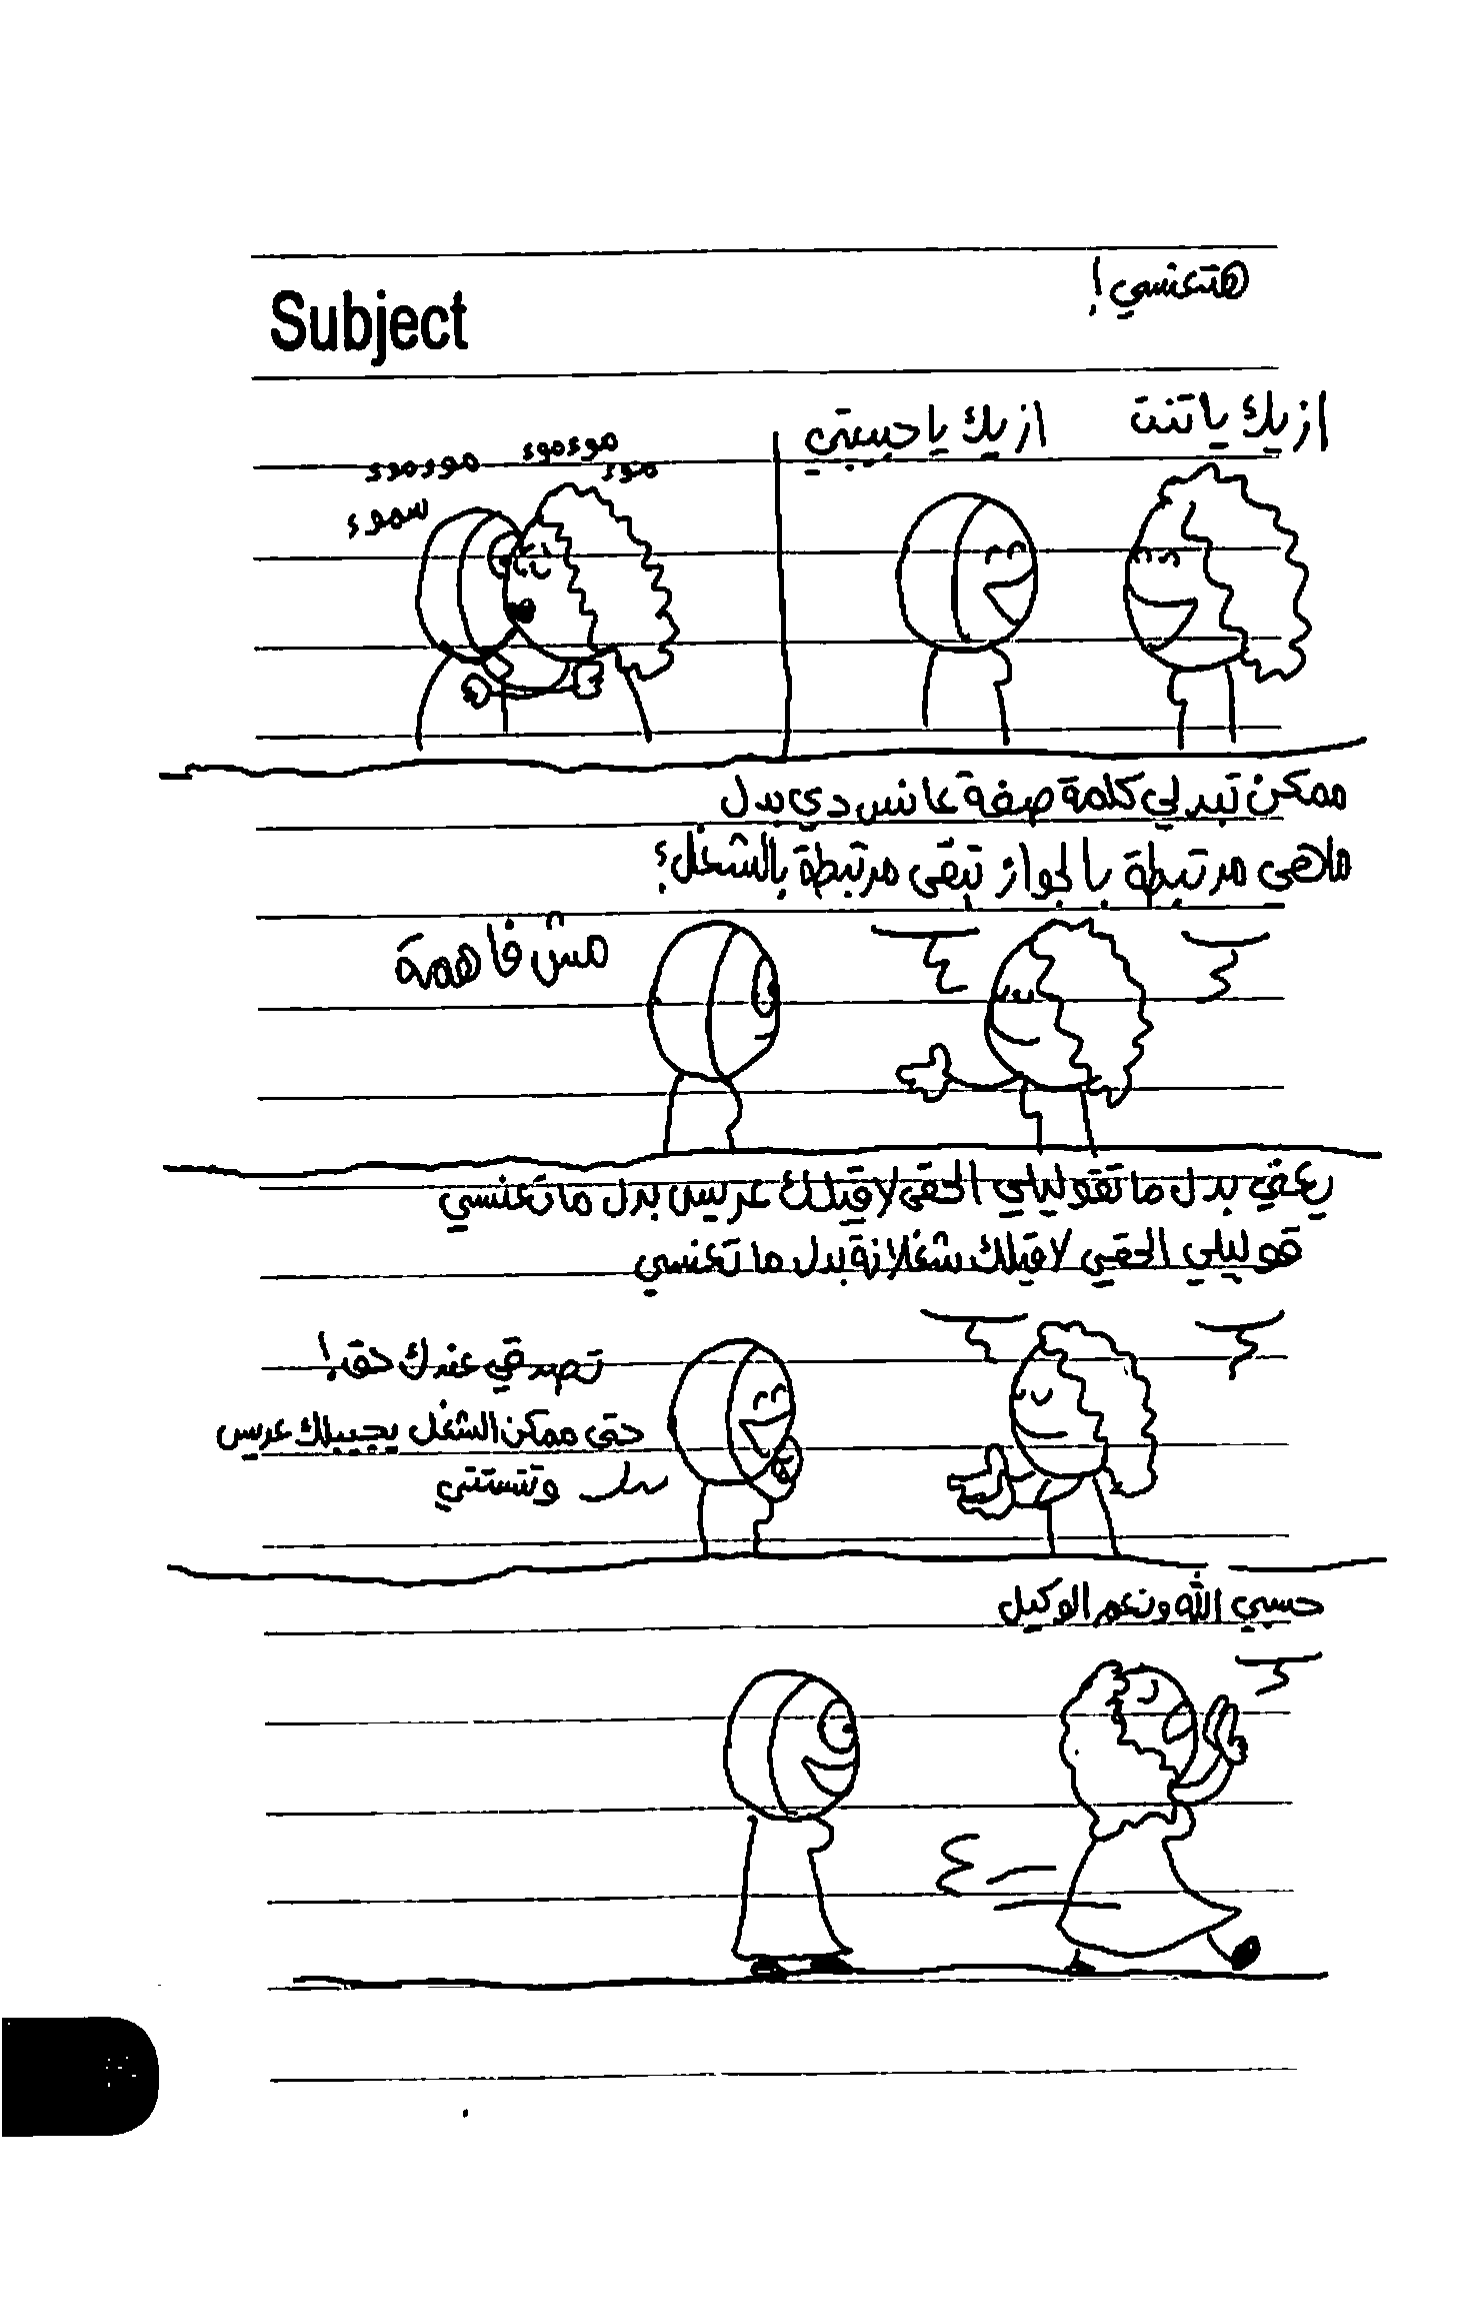 هتعنسي!
Subject
ازيك يا تنت
ازيك يا حبيبتي
موءموء
موء
موءموء
سموء
ممكن تبدلي كلمة صفة عانس دي بدل
ماهي مرتبطة بالجواز تبقى مرتبطة بالشغل؟
مش فاهمة
يعني بدل ما تقوليلي الحقي لاقيلك عريس بدل ما تعنسي
قوليلي الحقي لاقيلك شغلانة بدل ما تعنسي
تصدقي عندك حق!
حتى ممكن الشغل يجيبلك عريس
وتتستتي
حسبي الله ونعم الوكيل